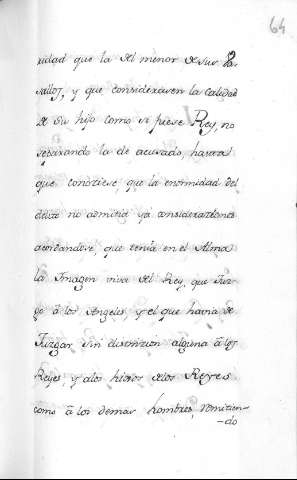 64
ridad que la del menor de sus Va-
sallos, y que considerasen la calidad
de su hijo como si fuese Rey, no
separando la de acusado, hasta
que conociese que la enormidad del
delito no admitia ya consideraciones
acordandose, que tenia en el Alma
la Imagen viva del Rey, que Juz-
go â los Angeles, y el que havia de
Juzgar sin distinzion alguna â los
Reyes, y alos hijos delos Reyes
como â los demas hombres, remitien-
-do